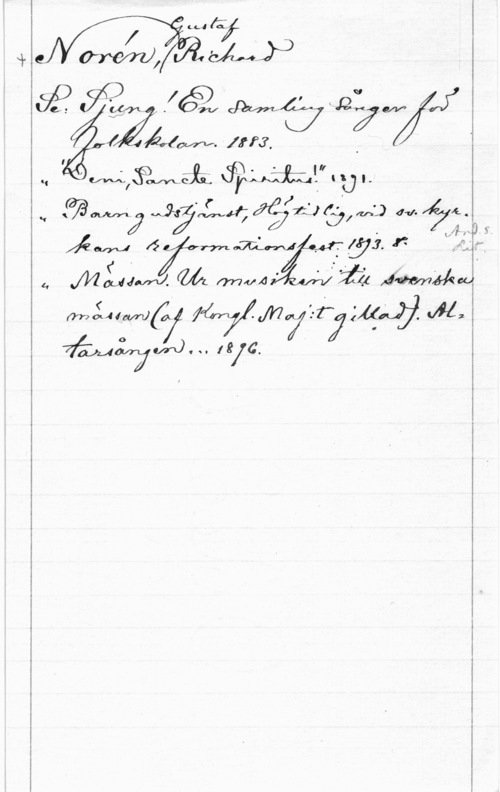 Gustaf
+ Norén, Richard
Se: Sjung! En samling sånger för
folkskolan. 1883.
" "Veni, Sancte Spiritus!" 1891.
" Barngudstjänst, Högtidlig, vid sv. kyr-
kans reformationsfest. 1893. 8°.
" Mässan. Ur musiken till svenska
mässan (af Kongl. Maj:t gillad). Al-
tarsången ... 1896.